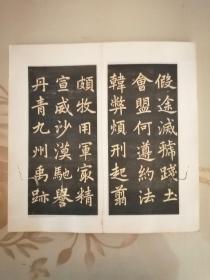 假途滅虢踐土
會盟何遵約法
韓弊煩刑起翦
頗牧用軍最精
宣威沙漠馳譽
丹青九州禹跡